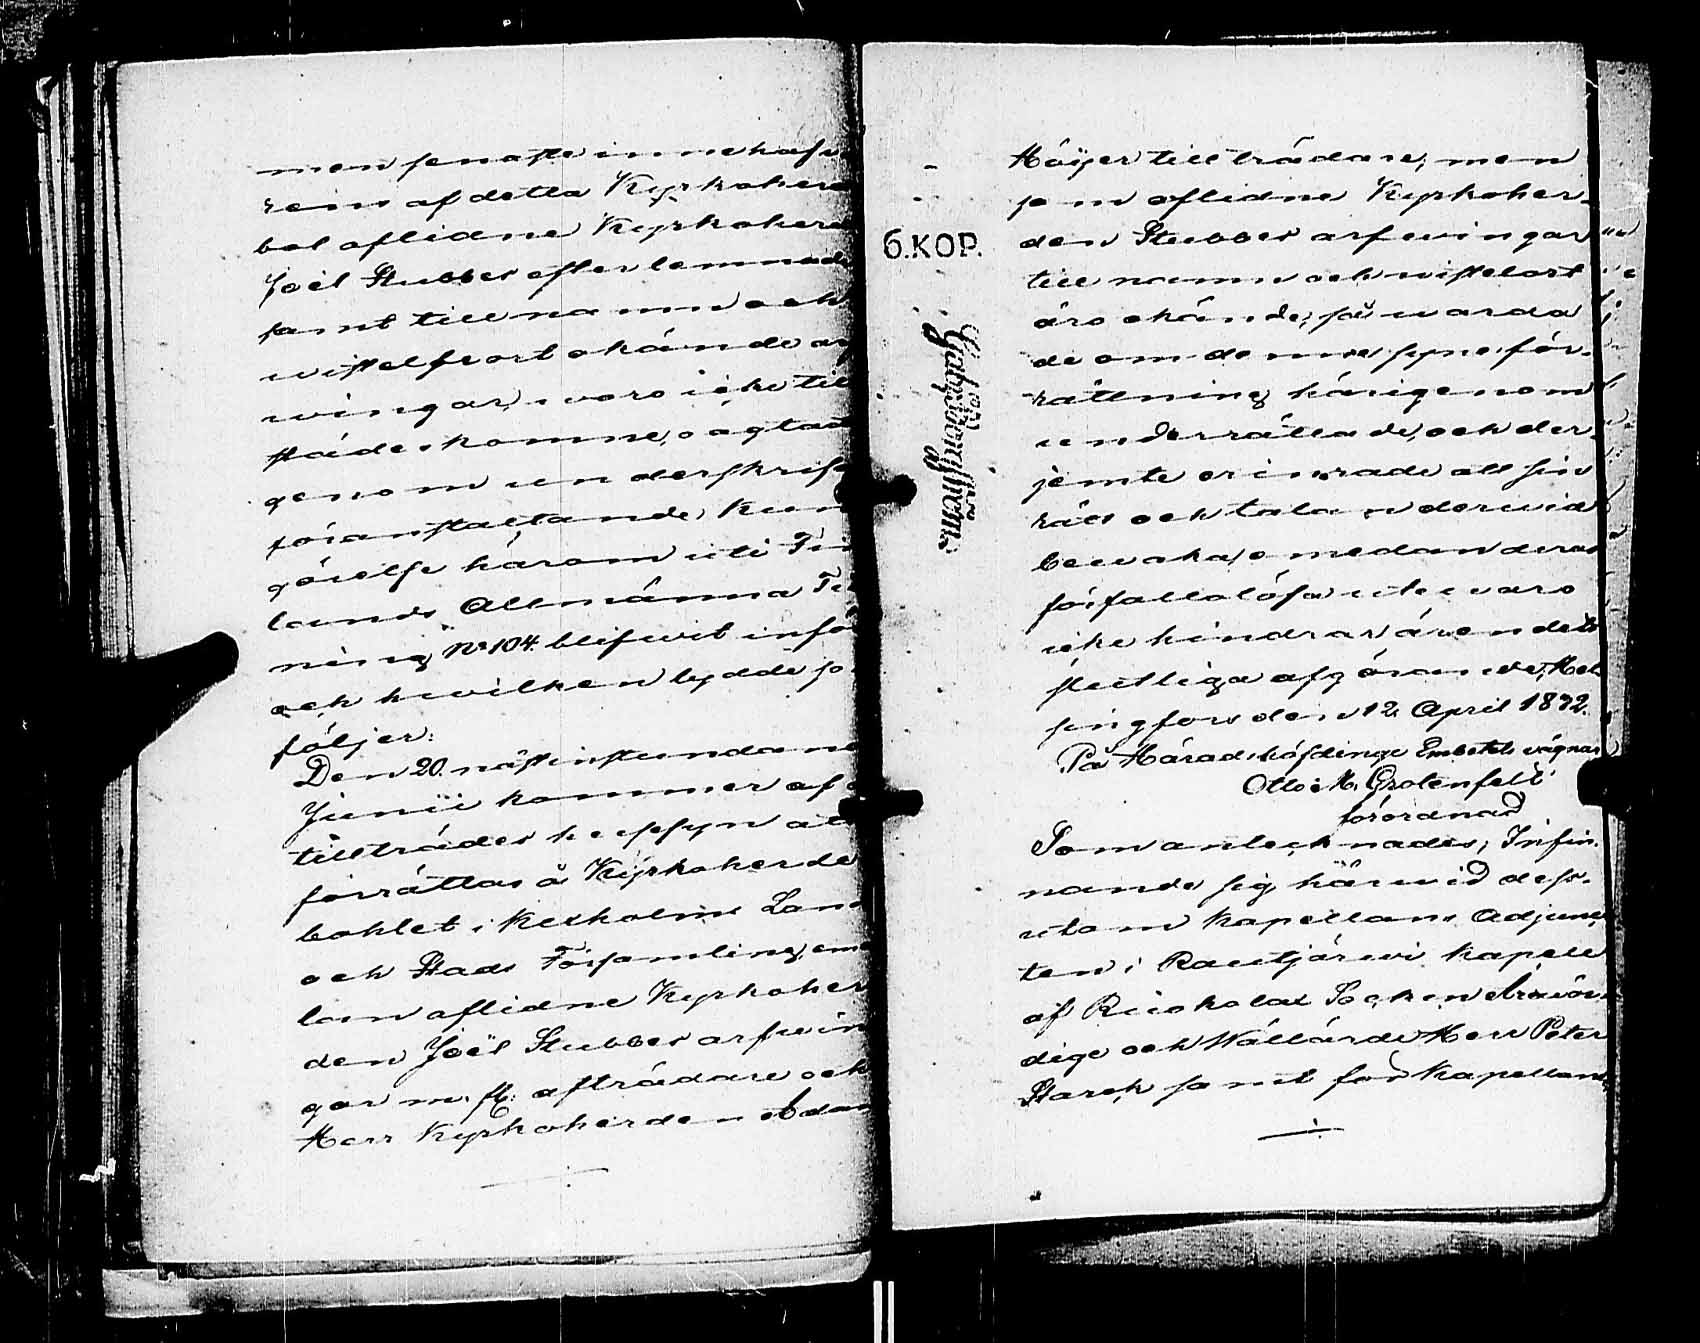 men senaste innehafva
rein af detta Kyrkoher
bol aflidne Kyrkoher
Joël Stubbes efterlemnade
samt till namn och
vistelseort okände arf
wingar, woro icke till
städeskomne, oagtadt
genom underskrif
föranstaltande, Kun
görelse härom uti Fin
lands Allmänna Tid
ning No 104. blifwit införd
och hwilken lydde so
följer:
Den 20. nästinstundande
Junii kommer af o
tillträdes husesyn att
förrättas å Kyrkoherde
bohlet i Kexholms Lands
och Stads Församling, emel
lan aflidne Kyrkoher
den Joël Stubbes arfwin
gar m. fl. afträdare och
Herr Kyrkoherden Adam
6.KOP.
Höijer tillträdare; men
som aflidne Kyrkoher-
den Stubbes arfwingar
till namn och vistelort
äro okände, så warda
de om denna syneför-
rättning härigenom
underrättade, och der-
jemte erinrade att sin
rätt och talan derwid
bewaka, emedan deras
förfallolösa utewaro
icke hindrar ärendets
slutliga afgörande; Hel-
singfors den 12 April 1832.
På Häradshöfdinge Embetets vägnar
Otto M. Grotenfelt
förordnad
Som antecknades; Infin-
nande sig härwid dess-
utom Kapellans Adjunc-
ten i Rautjärwi Kapell
af Ruokolax Socken Ärewör-
dige och Wällärde Herr Peter
Starck samt för Kapellans